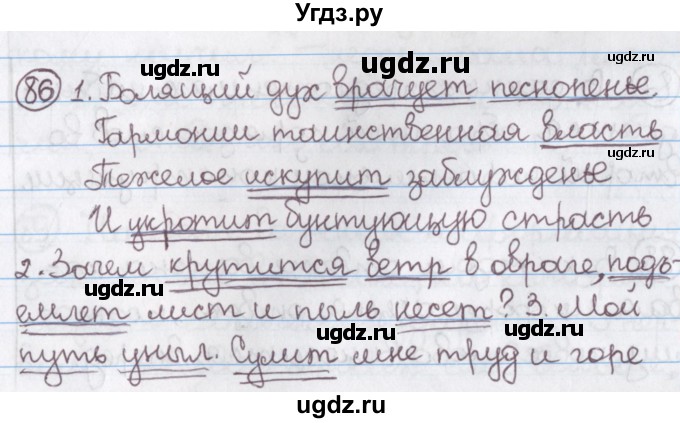 Угдз.ру
ugdz.ru ugdz.ru
86 1. Болящий дух врачует песнопенье.
Гармонии таинственная власть
ugdz.ru ugdz.ru
Тяжелое искупит заблужденье
И укротит бунтующую страсть
2. Зачем крутится ветр в овраге, подъ-
ugdz.ru ugdz.ru
емлет лист и пыль несет? 3. Мой
путь уныл. Сулит мне труд и горе
ugdz.ru